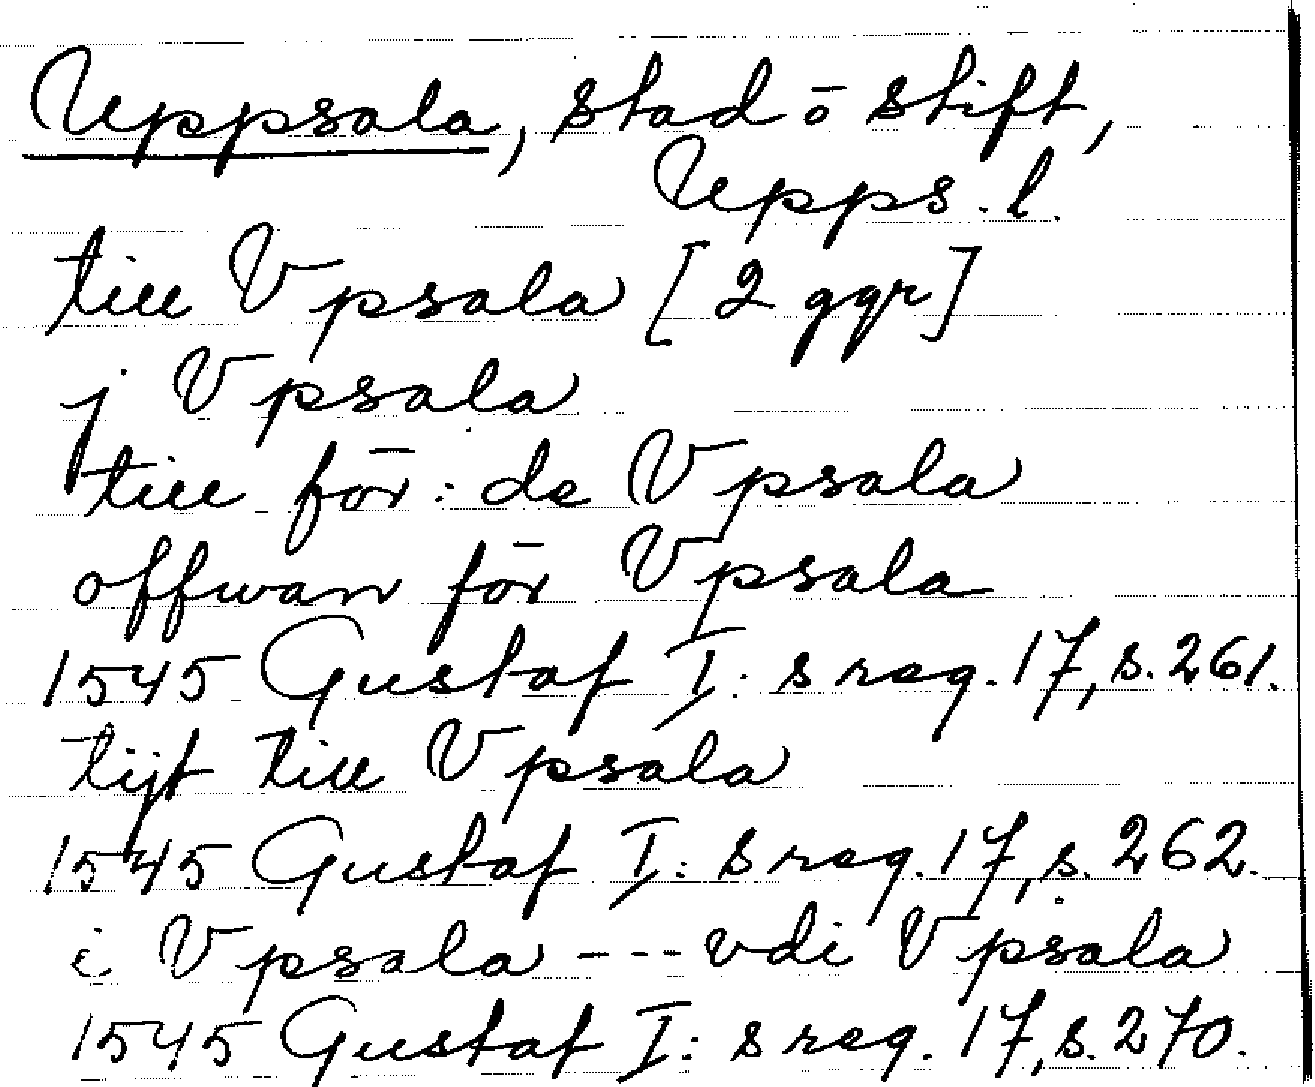 Uppsala, stad ō stift,
Upps. l.
till Vpsala [2 ggr]
j Vpsala
till för:de Vpsala
offwan för Vpsala
1545 Gustaf I:s reg. 17, s. 261.
tijt till Vpsala
1545 Gustaf I:s reg. 17, s. 262.
i Vpsala --- vdi Vpsala
1545 Gustaf I:s reg. 17, s. 270.